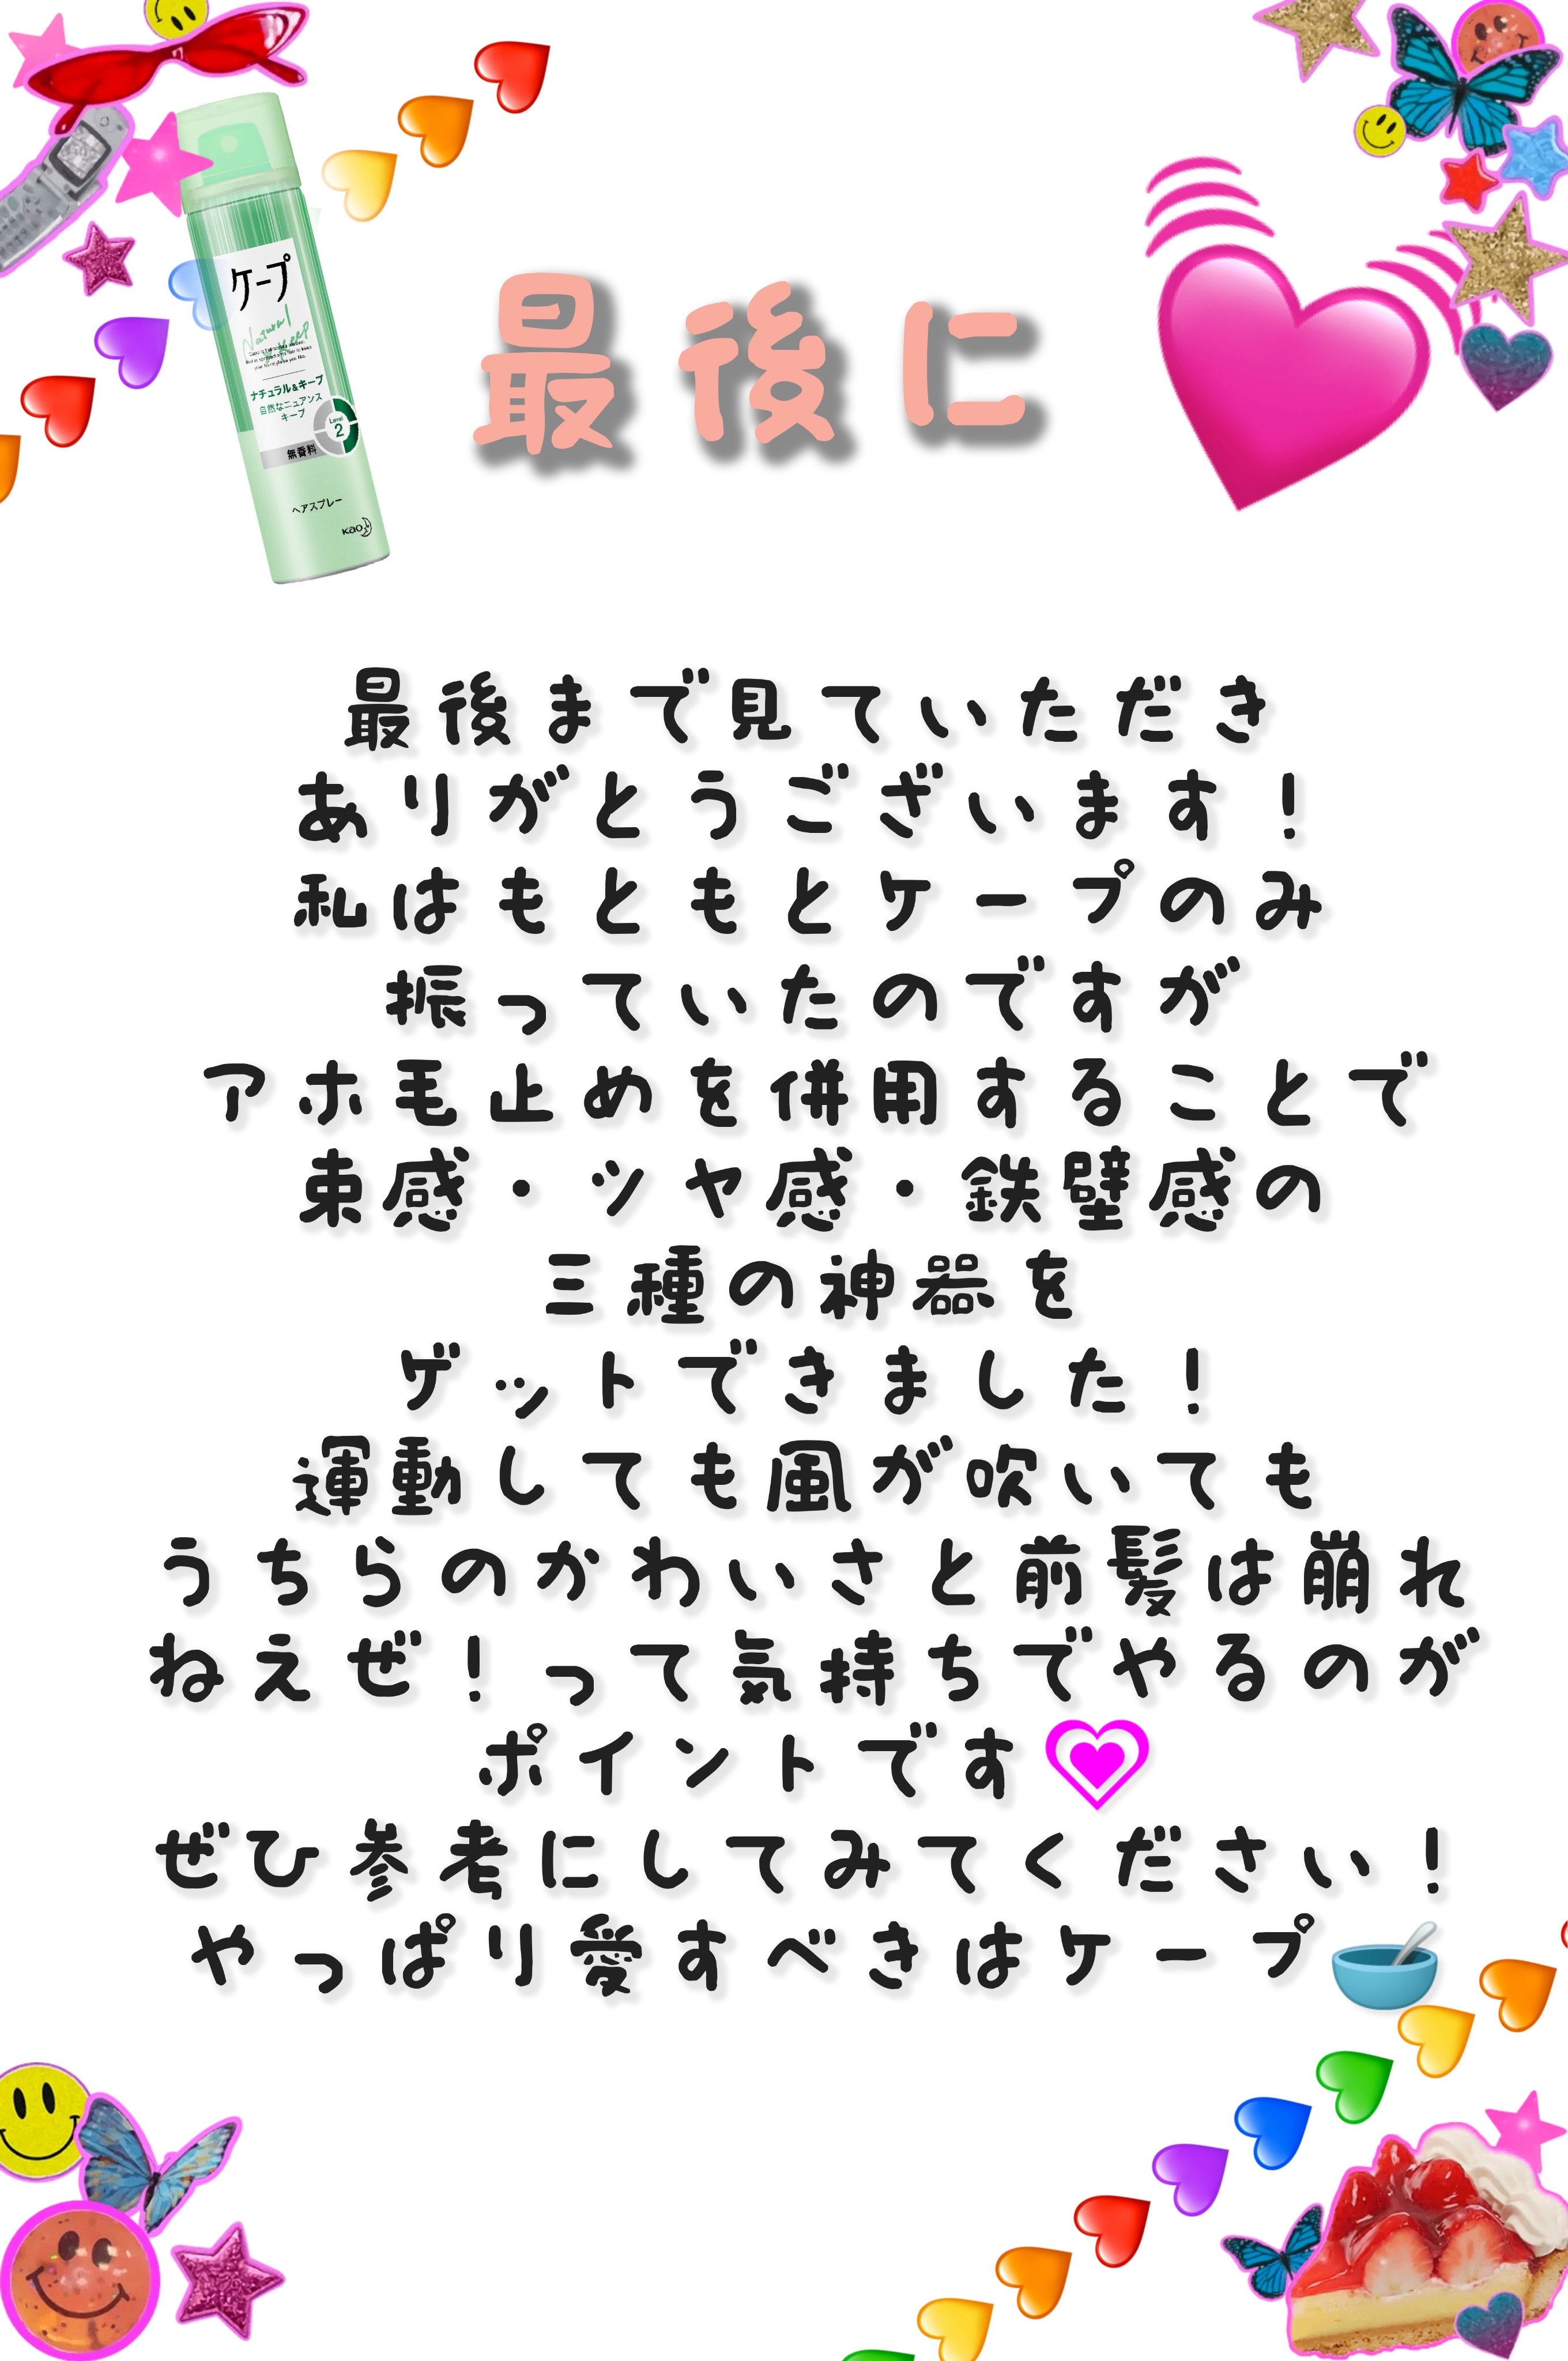 ケープ
Natural
Keep
ナチュラル&キープ
自然なニュアンス
キープ
Level
2
無香料
ヘアスプレー
Kao
最後に
最後まで見ていただき
ありがとうございます!
私はもともとケープのみ
振っていたのですが
アホ毛止めを併用することで
束感・ツヤ感・鉄壁感の
三種の神器を
ゲットできました!
運動しても風が吹いても
うちらのかわいさと前髪は崩れ
ねえぜ!って気持ちでやるのが
ポイントです💗
ぜひ参考にしてみてください!
やっぱり愛すべきはケープ🥣